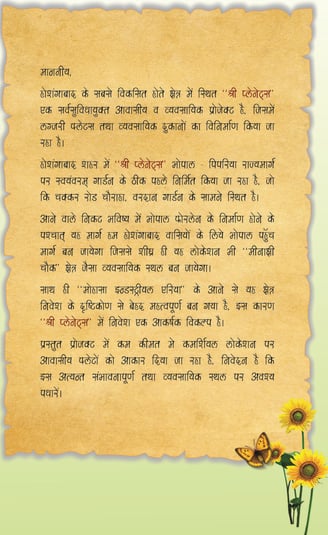 माननीय,
होशंगाबाद के सबसे विकसित होते क्षेत्र में स्थित "श्री प्लेनेट्स"
एक सर्वसुविधायुक्त आवासीय व व्यवसायिक प्रोजेक्ट है, जिसमें
लग्जरी फ्लेटस तथा व्यवसायिक दुकानों का विनिर्माण किया जा
रहा है।
होशंगाबाद शहर में "श्री प्लेनेट्स" भोपाल - पिपरिया राज्यमार्ग
पर स्वयंवरम् गार्डन के ठीक पहले निर्मित किया जा रहा है, जो
कि चक्कर रोड चौराहा, वरदान गार्डन के सामने स्थित है।
आने वाले निकट भविष्य में भोपाल फोरलेन के निर्माण होने के
पश्चात् यह मार्ग हम होशंगाबाद वासियों के लिये भोपाल पहुँच
मार्ग बन जायेगा जिससे शीघ्र ही यह लोकेशन भी "मीनाक्षी
चौक" क्षेत्र जैसा व्यवसायिक स्थल बन जायेगा।
साथ ही "मोहासा इन्डस्ट्रीयल एरिया" के आने से यह क्षेत्र
निवेश के दृष्टिकोण से बेहद महत्वपूर्ण बन गया है, इस कारण
"श्री प्लेनेट्स" में निवेश एक आकर्षक विकल्प है।
प्रस्तुत प्रोजेक्ट में कम कीमत मे कमर्शियल लोकेशन पर
आवासीय फ्लेटों को आकार दिया जा रहा है, निवेदन है कि
इस अत्यन्त संभावनापूर्ण तथा व्यवसायिक स्थल पर अवश्य
पधारें।